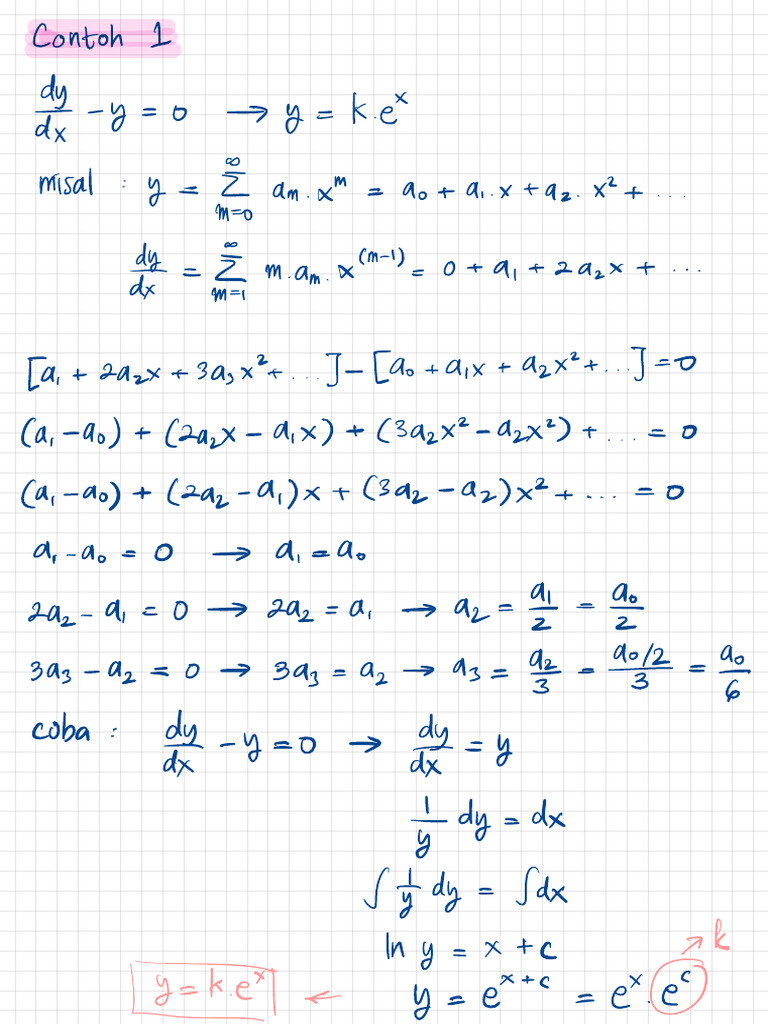 Contoh 1
dy/dx - y = 0 → y = k.e^x
misal : y = ∑_{m=0}^{∞} a_m . x^m = a_0 + a_1 . x + a_2 . x^2 + ...
dy/dx = ∑_{m=1}^{∞} m . a_m . x^{(m-1)} = 0 + a_1 + 2a_2x + ...
[a_1 + 2a_2x + 3a_3x^2 + ...] - [a_0 + a_1x + a_2x^2 + ...] = 0
(a_1 - a_0) + (2a_2x - a_1x) + (3a_2x^2 - a_2x^2) + ... = 0
(a_1 - a_0) + (2a_2 - a_1)x + (3a_2 - a_2)x^2 + ... = 0
a_1 - a_0 = 0 → a_1 = a_0
2a_2 - a_1 = 0 → 2a_2 = a_1 → a_2 = a_1/2 = a_0/2
3a_3 - a_2 = 0 → 3a_3 = a_2 → a_3 = a_2/3 = (a_0/2)/3 = a_0/6
coba : dy/dx - y = 0 → dy/dx = y
1/y dy = dx
∫ 1/y dy = ∫ dx
ln y = x + c
y = e^{x+c} = e^x . e^c ↗ k
← y = k.e^x